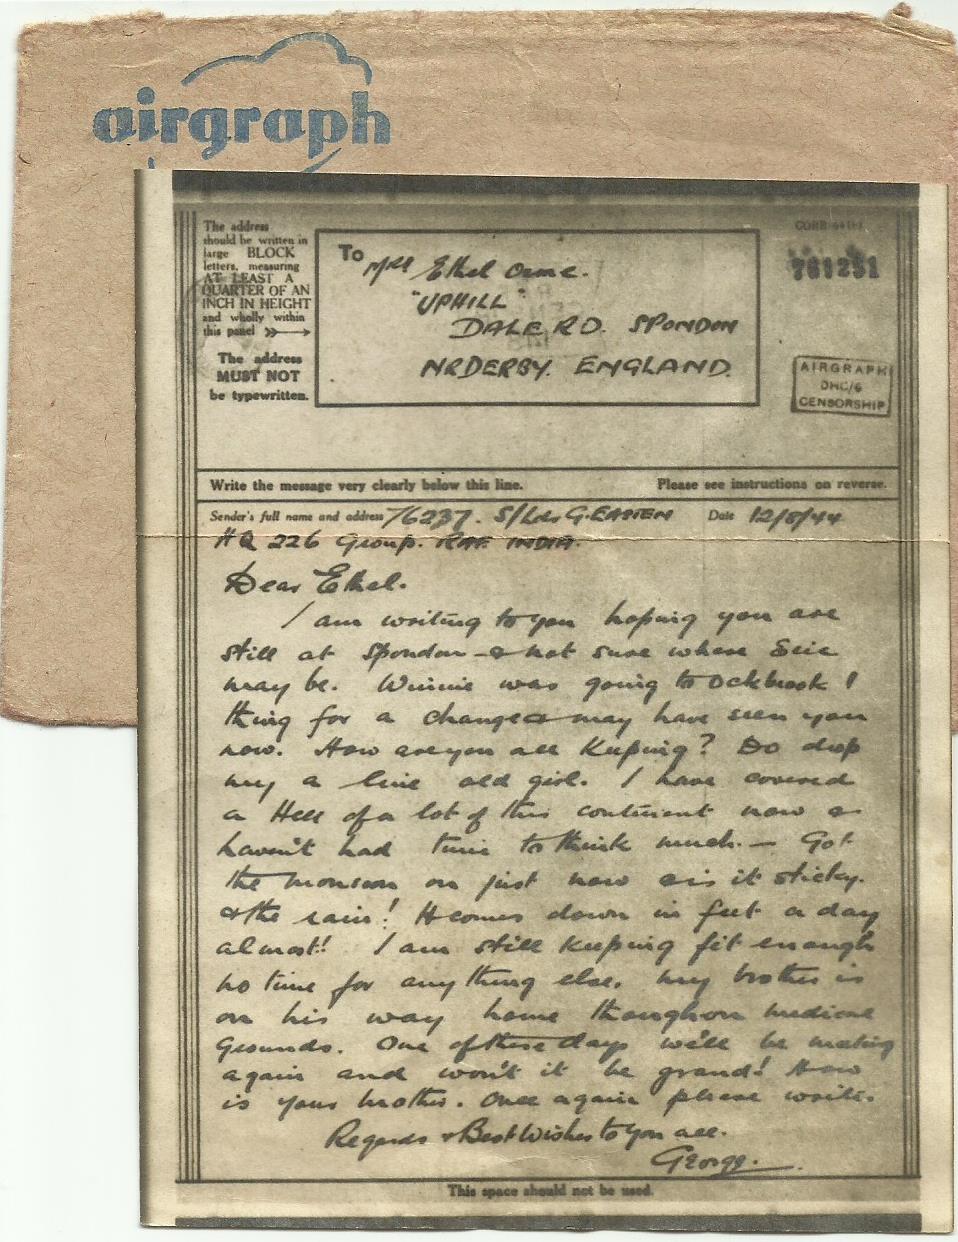 airgraph
The address
should be written in
large BLOCK
letters, measuring
AT LEAST A
QUARTER OF AN
INCH IN HEIGHT
and wholly within
this panel
The address
MUST NOT
be typewritten.
To Mrs Ethel Orme.
"UPHILL"
DALE RD. SPONDON
NR DERBY. ENGLAND.
761251
AIRGRAPH
DHC/6
CENSORSHIP
Write the message very clearly below this line.
Please see instructions on reverse.
Sender's full name and address 76237. S/Ldr G. EASTEN Date 12/5/44
HQ 226 Group. RAF INDIA.
Dear Ethel.
I am writing to you hoping you are
still at Spondon - & not sure where
may be. Winnie was going to Ockbrook I
thing for a change & may have seen you
now. How are you all keeping? Do drop
my a line old girl. I have covered
a Hell of a lot of this continent now &
haven't had time to think much. — Got
the monsoon on just now & is it sticky.
& the rain! It comes down in feet a day
almost! I am still keeping fit enough
no time for anything else. My brother is
on his way home though on medical
grounds. One of these days we'll be meeting
again and won't it be grand! How
is your brother. Once again please write.
Regards & Best Wishes to you all.
George.
This space should not be used.